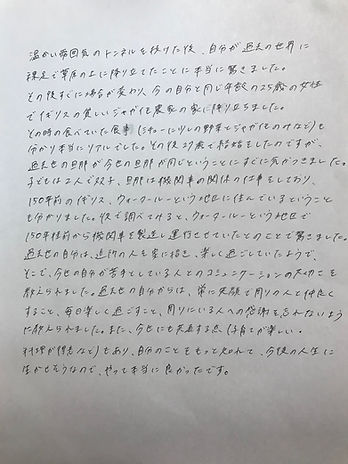 温かい雰囲気のトンネルを抜けた後、自分が過去の世界に
裸足で草原の上に降り立てたことに本当に驚きました。
その後すぐに場面が変わり、今の自分と同じ年齢の25歳の女性
でイギリスの貧しいジャガイモ農家の家に降り立ちました。
その時の食べていた食事(シチューに少しの野菜とジャガイモのみなど)も
分かり本当にリアルでした。その後27歳で結婚をしたのですが、
過去世の旦那が今世の旦那が同じということにすぐに気がつきました。
子どもは2人で双子、旦那は機関車の関係の仕事をしており、
150年前のイギリス、ウォータールーという地区に住んでいるということ
も分かりました。後で調べてみると、ウォータールーという地区で
150年位前から機関車を製造し運行させていたとのことで驚きました。
過去世の自分は、近所の人を家に招き、楽しく過ごしていたようで、
そこで、今世の自分が苦手としている人とのコミュニケーションの大切さを
教えられました。過去世の自分からは、常に笑顔で周りの人と仲良く
すること、毎日楽しく過ごすこと、周りにいる人への感謝を忘れないよう
に教えられました。また、今世にも共通する点(子育てが楽しい・
料理が得意など)もあり、自分のことをもっと知れて、今後の人生に
生かせそうなので、やって本当に良かったです。